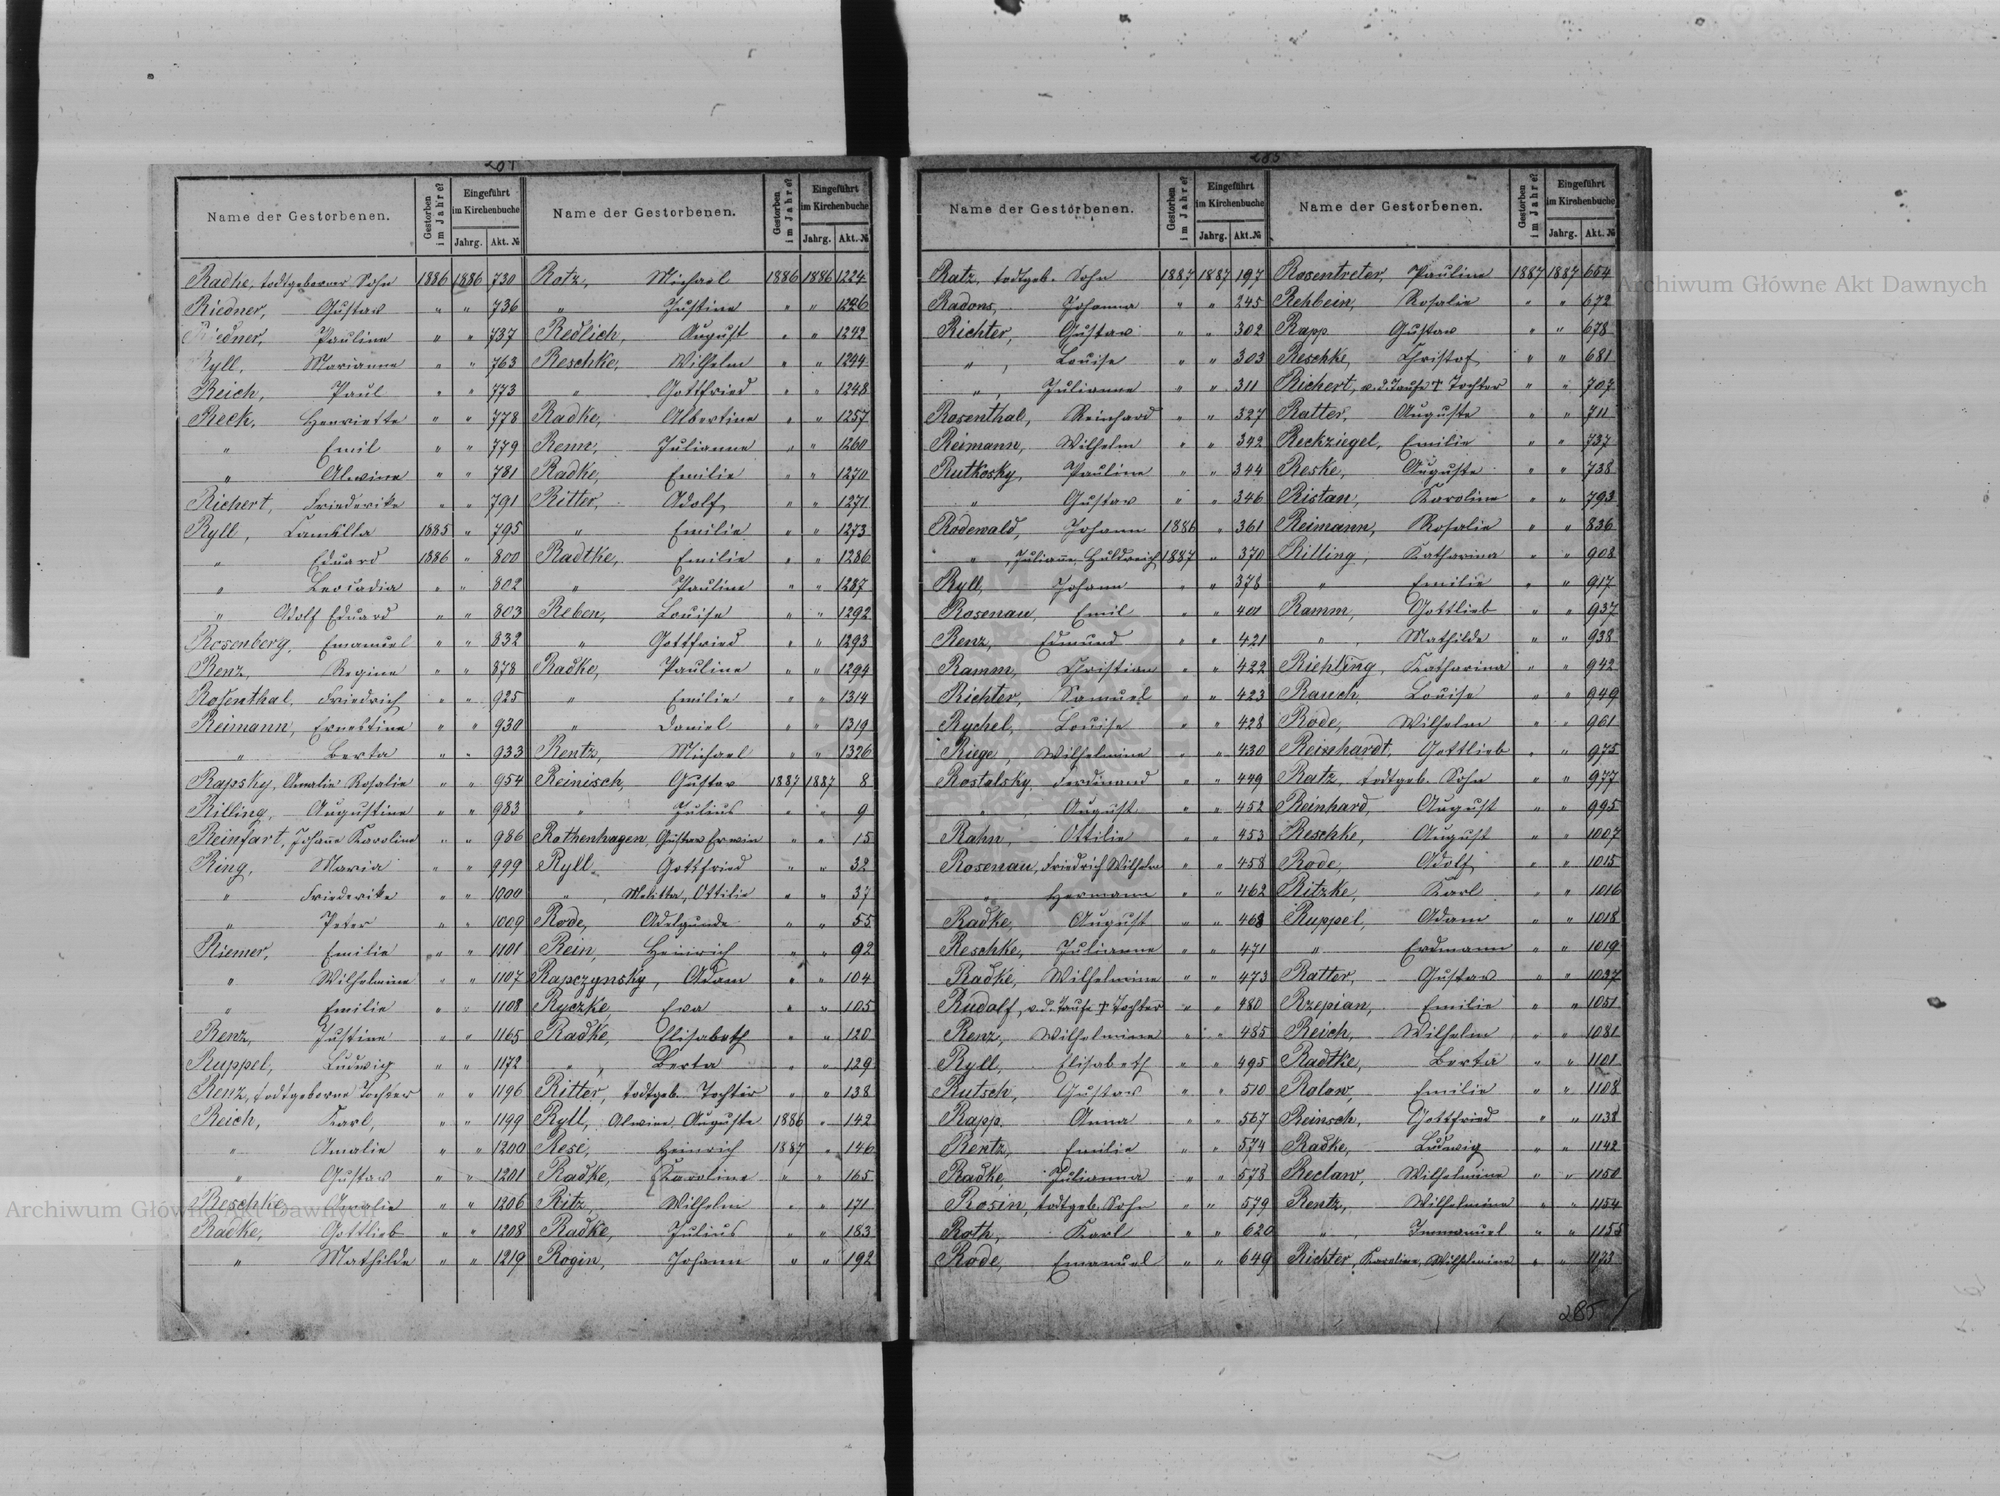 285
Name der Gestorbenen. Gestorben im Jahre? Eingeführt im Kirchenbuche Jahrg. Akt. №
Name der Gestorbenen. Gestorben im Jahre? Eingeführt im Kirchenbuche Jahrg. Akt. №
Radke, todtgeborner Sohn 1886 1886 730
Riedner, Gustav " " 736
Riedner, Pauline " " 737
Ryll, Marianne " " 763
Reich, Paul " " 773
Reck, Henriette " " 778
" Emil " " 779
" Alwine " " 781
Richert, Friederike " " 791
Ryll, Camilla 1885 " 795
" Eduard 1886 " 800
" Leocadia " " 802
" Adolf Eduard " " 803
Rosenberg, Emanuel " " 832
Renz, Regine " " 878
Rosenthal, Friedrich " " 925
Reimann, Ernestine " " 930
" Berta " " 933
Rapsky, Amalie Rosalie " " 954
Rilling, Augustine " " 983
Reinfart, Johane Karoline " " 986
Ring, Maria " " 999
" Friederike " " 1000
" Peter " " 1009
Riemer, Emilie " " 1101
" Wilhelmine " " 1107
" Emilie " " 1108
Renz, Justine " " 1165
Ruppel, Ludwig " " 1172
Renz, todtgeborne Tochter " " 1196
Reich, Karl, " " 1199
" Amalie " " 1200
" Gustav " " 1201
Reschke, Amalie " " 1206
Radke, Gottlieb " " 1208
" Mathilde " " 1219
Rotz, Michael 1886 1886 1224
" Justine " " 1226
Redlich, August " " 1242
Reschke, Wilhelm " " 1244
" Gottfried " " 1248
Radke, Albertine " " 1257
Reim, Julianne " " 1260
Radke, Emilie " " 1270
Ritter, Adolf " " 1271
" Emilie " " 1273
Radtke, Emilie " " 1286
" Pauline " " 1287
Reben, Louise " " 1292
" Gottfried " " 1293
Radke, Pauline " " 1299
" Emilie " " 1314
" Daniel " " 1319
Rentz, Michael " " 1326
Reinisch, Gustav 1887 1887 8
" Julius " " 9
Rothenhagen, Gustav Erwin " " 15
Ryll, Gottfried " " 32
" , Melitta, Ottilie " " 37
Rode, Adelgunde " " 55
Rein, Heinrich " " 92
Rapczynsky, Adam " " 104
Ryczke, Eva " " 105
Radke, Elisabeth " " 120
" , Berta " " 129
Ritter, todtgeb. Tochter " " 138
Ryll, Alwine, Auguste 1886 " 142
Rese, Heinrich 1887 " 146
Radke, Karoline " " 165
Ritz, Wilhelm " " 171
Radke, Julius " " 183
Rogin, Johann " " 192
285
Name der Gestorbenen. Gestorben im Jahre? Eingeführt im Kirchenbuche Jahrg. Akt. №
Name der Gestorbenen. Gestorben im Jahre? Eingeführt im Kirchenbuche Jahrg. Akt. №
Ratz, todtgeb. Sohn 1887 1887 197
Radons, Johanna " " 245
Richter, Gustav " " 302
" , Louise " " 303
" , Julianne " " 311
Rosenthal, Reinhard " " 327
Reimann, Wilhelm " " 342
Rutkosky, Pauline " " 344
" Gustav " " 346
Rodewald, Johann 1886 " 361
" , Juliane Huldreich 1887 " 370
Ryll, Johann " " 378
Rosenau, Emil " " 401
Renz, Edmund " " 421
Ramm, Christian " " 422
Richter, Samuel " " 423
Rychel, Louise " " 428
Riege, Wilhelmine " " 430
Rostalsky, Ferdinand " " 449
" , August " " 452
Rahn, Ottilie " " 453
Rosenau, Friedrich Wilhelm " " 458
" Hermann " " 462
Radke, August " " 463
Reschke, Julianne " " 471
Radke, Wilhelmine " " 473
Rudolf, v. d. Taufe † Tochter " " 480
Renz, Wilhelmine " " 485
Ryll, Elisabeth " " 495
Rutsch, Gustav " " 510
Rapp, Anna " " 567
Rentz, Emilie " " 574
Radke, Julianna " " 578
Rosin, todtgeb. Sohn " " 579
Roth, Karl " " 620
Rode, Emanuel " " 649
Rosentreter, Pauline 1887 1887 654
Rehbein, Rosalie " " 672
Rapp Gustav " " 678
Reschke, Christof " " 681
Richert, v. d. Taufe † Tochter " " 707
Ratter, Auguste " " 711
Reckziegel, Emilie " " 737
Reske, Auguste " " 738
Ristau, Karoline " " 793
Reimann, Rosalie " " 836
Rilling, Katharina " " 908
" Emilie " " 917
Ramm, Gottlieb " " 937
" , Mathilde " " 938
Riehling, Katharina " " 942
Rauch, Louise " " 949
Rode, Wilhelm " " 961
Reinhardt, Gottlieb " " 975
Ratz, todtgeb. Sohn " " 977
Reinhard, August " " 995
Reschke, August " " 1007
Rode, Adolf " " 1015
Ritzke, Karl " " 1016
Ruppel, Adam " " 1018
" Erdmann " " 1019
Ratter, Gustav " " 1037
Rzepian, Emilie " " 1051
Reich, Wilhelm " " 1081
Radtke, Berta " " 1101
Rolow, Emilie " " 1108
Reinsch, Gottfried " " 1138
Radke, Ludwig " " 1142
Reclaw, Wilhelmine " " 1150
Rentz, Wilhelmine " " 1154
" , Immanuel " " 1155
Richter, Karoline, Wilhelmine " "
285
Archiwum Główne Akt Dawnych
Archiwum Główne Akt Dawnych